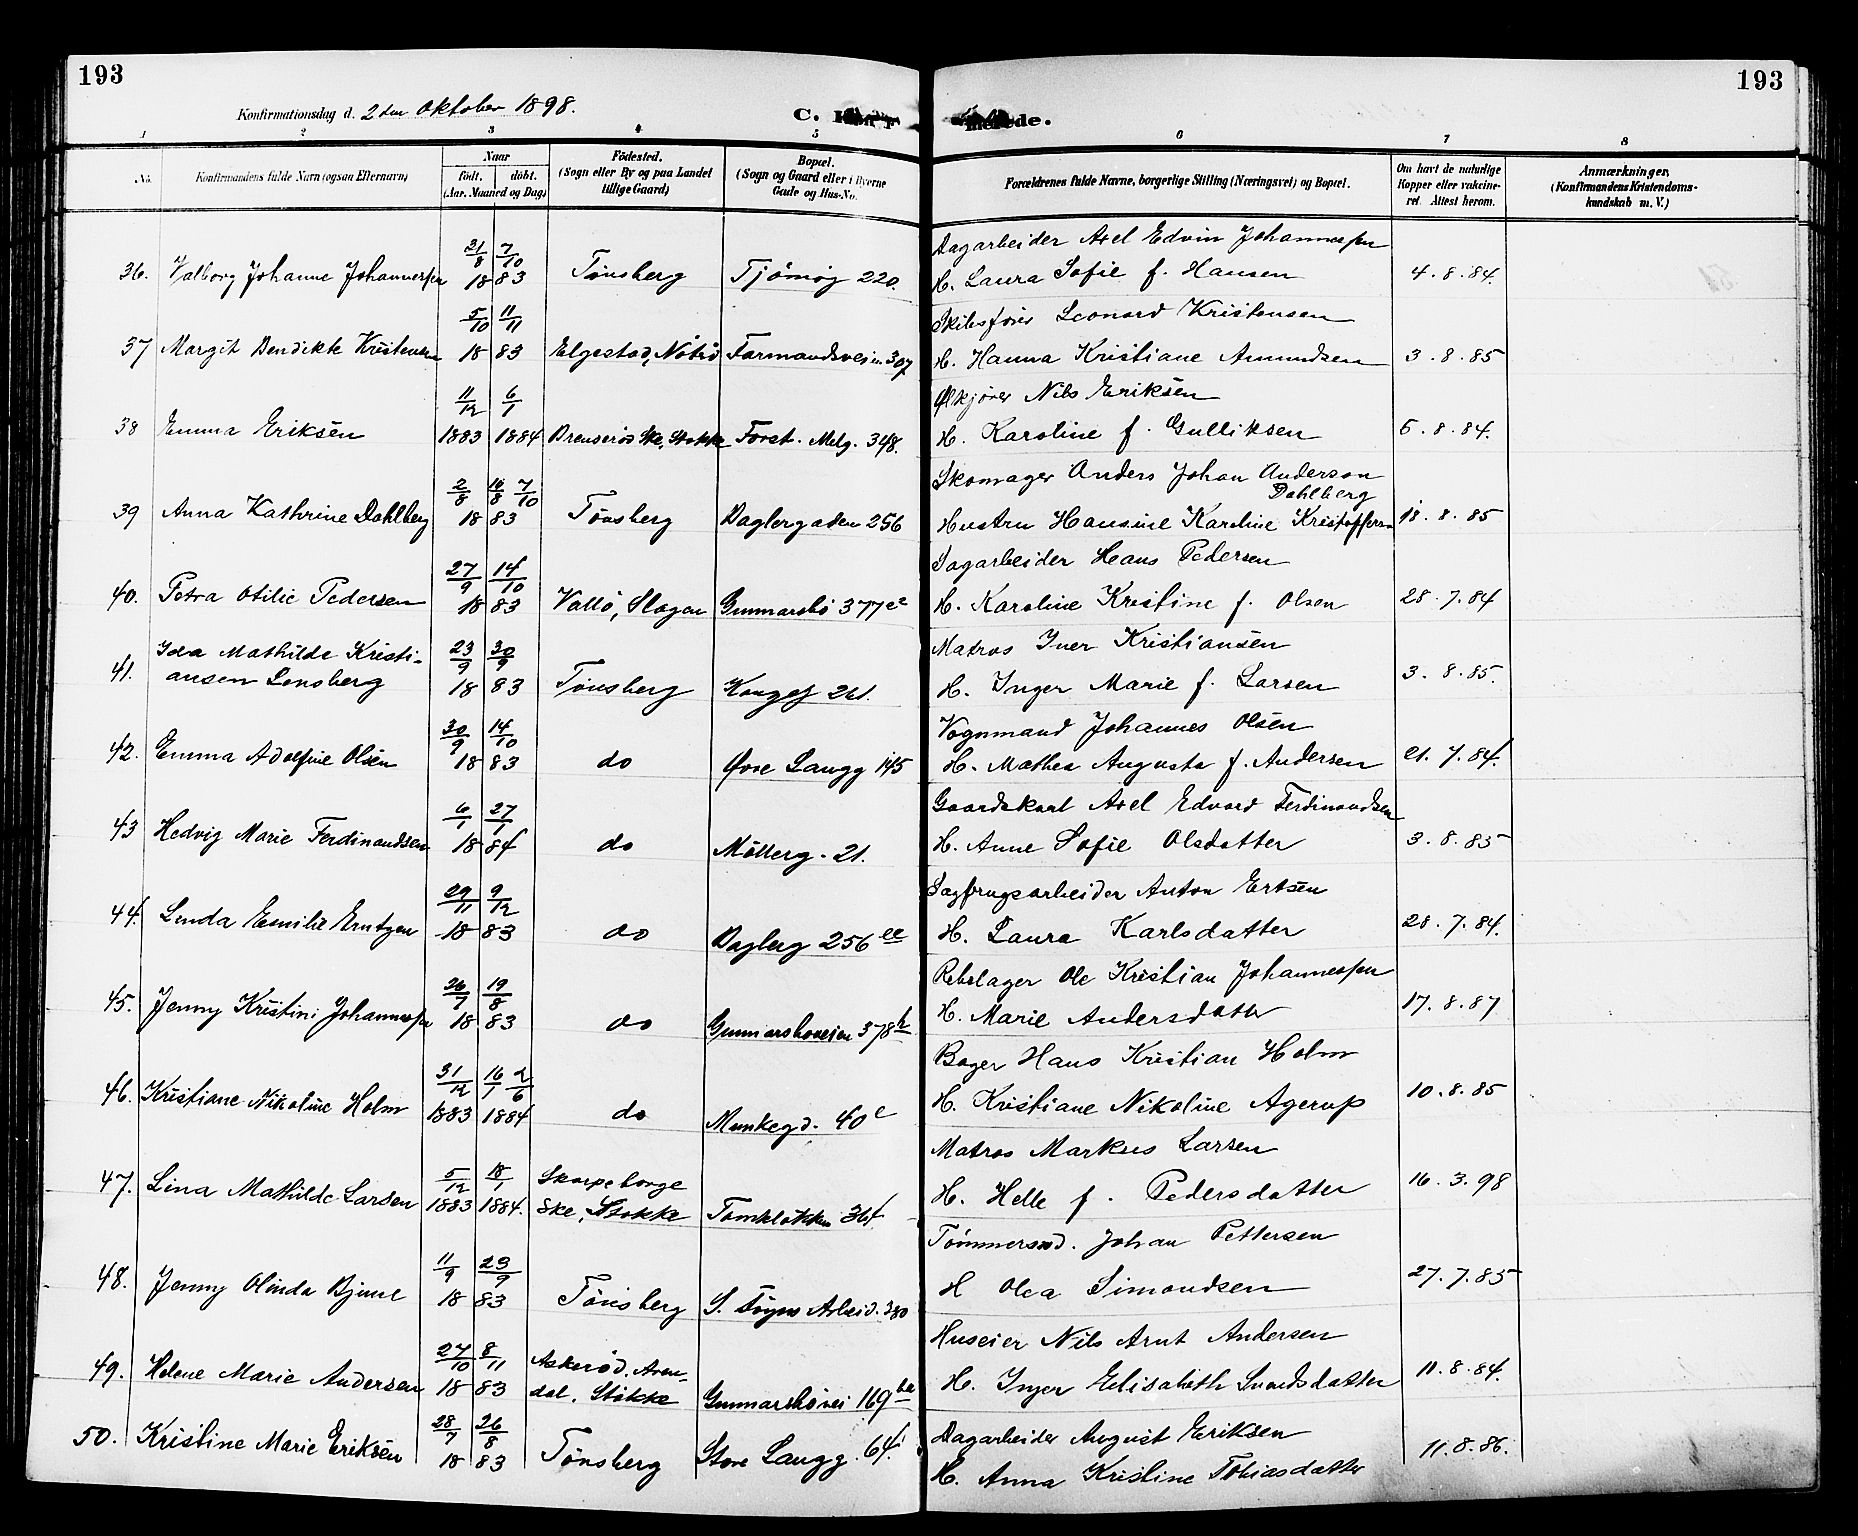 193
193
Konfirmationsdag d. 2den Oktober 1898.
C. Konfirmerede.
1 2 3 4 5 6 7 8
No.
Konfirmandens fulde Navn (ogsaa Efternavn)
Naar
født. døbt.
(Aar. Maaned og Dag)
Fødested.
(Sogn eller By og paa Landet
tillige Gaard)
Bopæl.
(Sogn og Gaard eller i Byerne
Gade og Hus-No.
Forældrenes fulde Navne, borgerlige Stilling (Næringsvei) og Bopæl.
Om havt de naturlige
Kopper eller vakcine-
ret. Attest herom.
Anmærkninger,
(Konfirmandens Kristendoms-
kundskab m. V.)
21/8 7/10 Dagarbeider Axel Edvin Johannessen
36. Valborg Johanne Johannessen 18 83 Tønsberg Tjømøg 220. H. Laura Sofie f. Hansen 4.8.84.
5/10 11/11 Skibsfører Leonard Kristensen
37 Margit Bendikte Kristensen 18 83 Elgestad, Nøtrø Farmandsveien 307 H. Hanna Kristiane Amundsen 3.8.85
11/12 6/1 Ølkjører Nils Eriksen
38 Emma Eriksen 1883 1884 Brenserød Ske, Stokke Forst. Melg. 348. H. Karoline f. Gulliksen 5.8.84.
2/8 10/8 7/10 Skomager Anders Johan Anderson
Dahlberg
39 Anna Kathrine Dahlberg 18 83 Tønsberg Baglergaden 256 Hustru Hansine Karoline Kristoffersen 18.8.85
27/9 14/10 Sagarbeider Hans Pedersen
40. Petra Otilie Pedersen 18 83 Vallø, Slagen Gunnarsbø 377 e2 H. Karoline Kristine f. Olsen 28.7.84
41. Ida Mathilde Kristi- 23/9 30/9 Matros Iver Kristiansen
ansen Lensberg 18 83 Tønsberg Kongeg 261. H. Inger Marie f. Larsen 3.8.85.
30/9 14/10 Vognmand Johannes Olsen
42. Emma Adolfine Olsen 18 83 do Øvre Langg 145 H. Mathea Augusta f. Andersen 21.7.84.
6/1 27/1 Gaardskarl Axel Edvard Ferdinandsen
43 Hedvig Marie Ferdinandsen 18 84 do Møllerg. 21. H. Anne Sofie Olsdatter 3.8.85
29/11 9/12 Sagbrugsarbeider Anton Ertsen
44. Linda Emilie Erntzen 18 83 do Baglerg 256 ee H. Laura Karlsdatter 28.7.84.
26/7 19/8 Rebslager Ole Kristian Johannessen
45. Jenny Kristine Johannessen 18 83 do Gunnarsboveien 378 h H. Marie Andersdatter 17.8.87
31/12 16/1 2/6 Bager Hans Kristian Holm
46. Kristiane Nikoline Holm 1883 1884 do Munkegd. 40 e H. Kristiane Nikoline Agerup 10.8.85
5/12 18/1 Skarpeborge Matros Markus Larsen
47. Lina Mathilde Larsen 1883 1884. Ske, Stokke Tomkløkken 364. H. Helle f. Pedersdatter 16.3.98
11/9 23/9 Tømmersvd. Johan Pettersen
48. Jenny Olinda Bjune 18 83 Tønsberg S. Arbeid. 380 H Olea Simondsen 27.7.85
27/10 8/11 Askerød. Aren- Huseier Nils Arnt Andersen
49. Helene Marie Andersen 18 83 dal, Stokke Gunnarsbøvei 169 H. Inger Elisabeth Svendsdatter 11.8.84.
28/7 26/8 Dagarbeider August Eriksen
50. Kristine Marie Eriksen 18 83 Tønsberg Store Langg. 64. H. Anna Kristine Tobiasdatter 11.8.86.